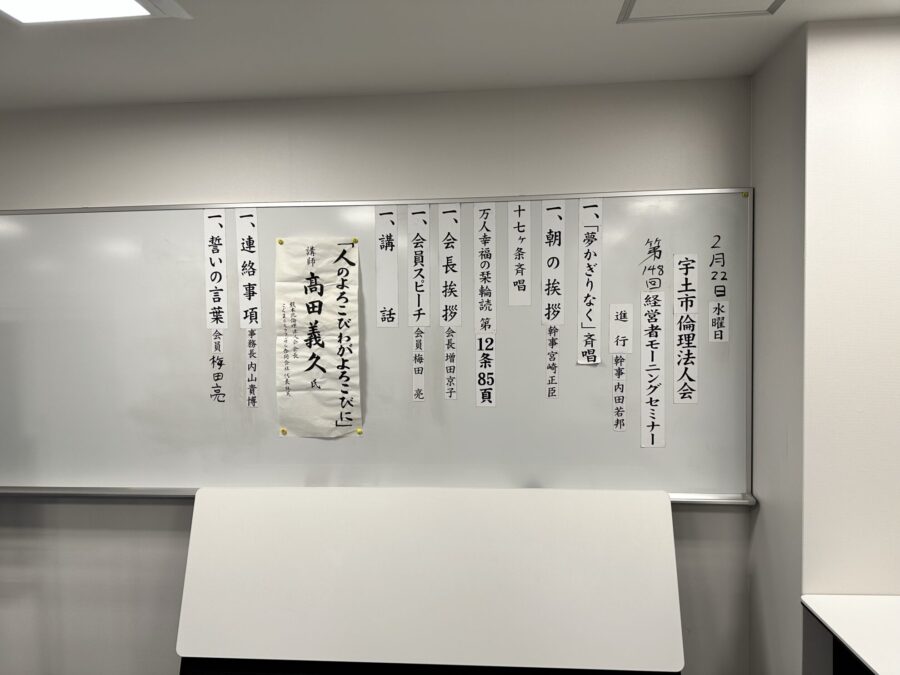 2月22日 水曜日
宇土市倫理法人会
第148回 経営者モーニングセミナー
進行 幹事 内田若邦
一、「夢かぎりなく」斉唱
一、朝の挨拶 幹事 宮崎正臣
十七ヶ条斉唱
万人幸福の栞輪読 第12条85頁
一、会長挨拶 会長 増田京子
一、会員スピーチ 会員 梅田 亮
一、講話
「人のよろこびわがよろこびに」
講師 髙田義久 氏
一、連絡事項 事務長 内山貴博
一、誓いの言葉 会員 梅田亮